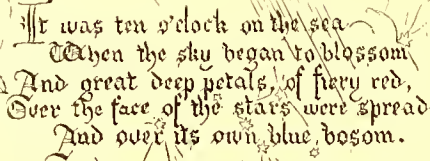 It was ten o'clock on the sea
When the sky began to blossom
And great deep petals, of fiery red,
Over the face of the stars were spread
And over its own blue bosom.